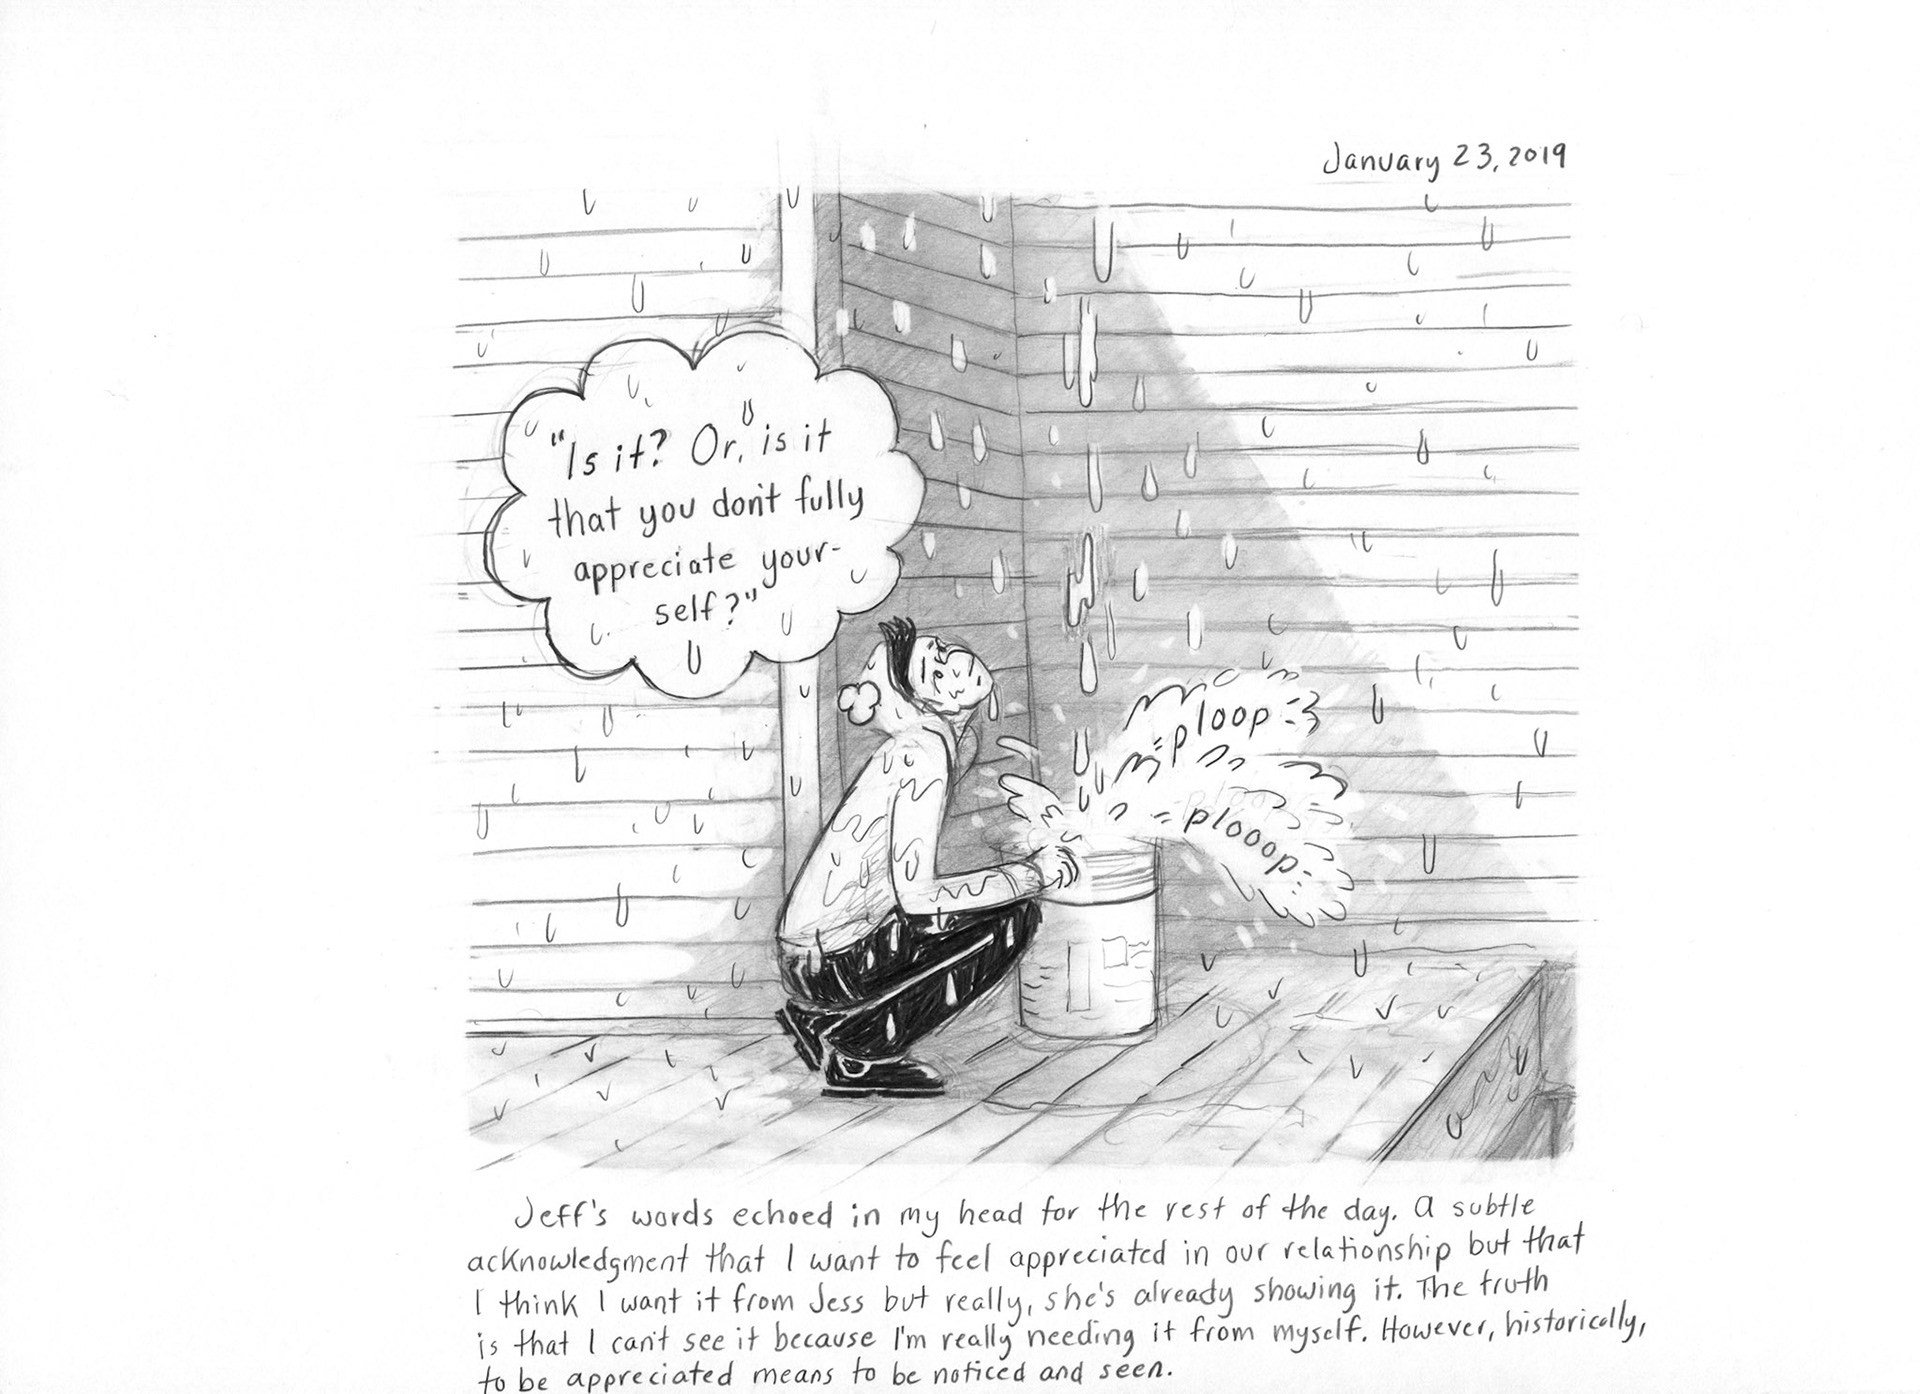 January 23, 2019
"Is it? Or, is it
that you don't fully
appreciate your-
self?"
ploop
plooop
Jeff's words echoed in my head for the rest of the day. A subtle
acknowledgment that I want to feel appreciated in our relationship but that
I think I want it from Jess but really, she's already showing it. The truth
is that I can't see it because I'm really needing it from myself. However, historically,
to be appreciated means to be noticed and seen.